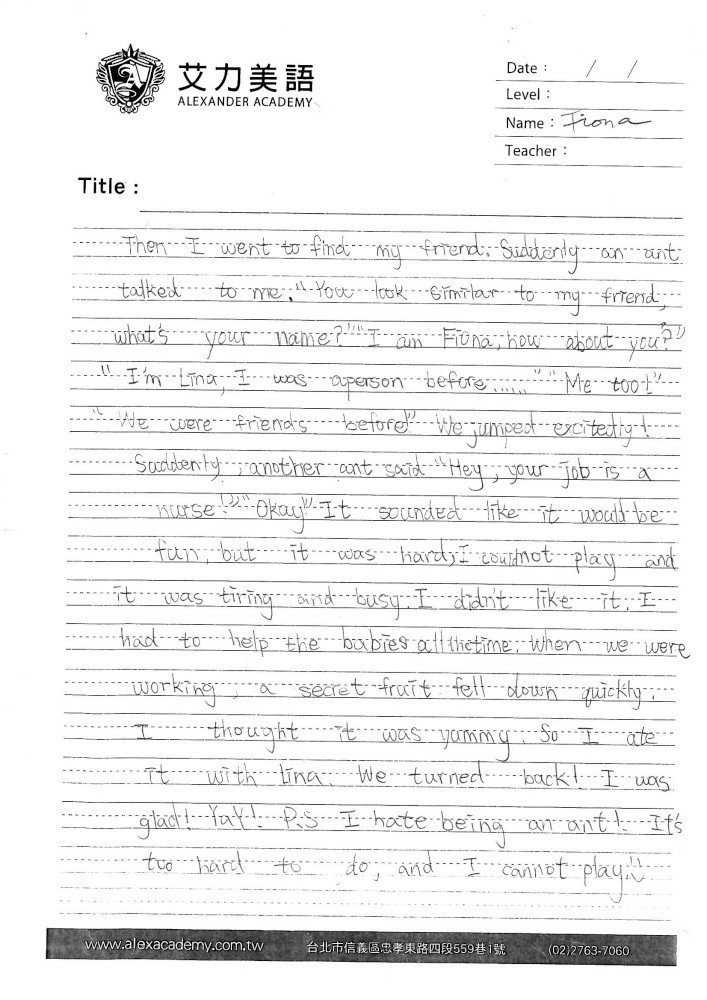 艾力美語
ALEXANDER ACADEMY
Date : / /
Level :
Name : Fiona
Teacher :
Title :
Then I went to find my friend. Suddenly an ant
talked to me. "You look similar to my friend,
what's your name?" "I am Fiona, how about you?"
"I'm Lina, I was a person before......" "Me too!"
"We were friends before!" We jumped excitedly!
Suddenly, another ant said "Hey, your job is a
nurse!" "Okay" It sounded like it would be
fun, but it was hard, I could not play and
it was tiring and busy. I didn't like it, I
had to help the babies all the time. When we were
working, a secret fruit fell down quickly.
I thought it was yummy. So I ate
it with Lina. We turned back! I was
glad! YaY! P.S I hate being an ant! It's
too hard to do, and I cannot play.
www.alexacademy.com.tw 台北市信義區忠孝東路四段559巷1號 (02)2763-7060